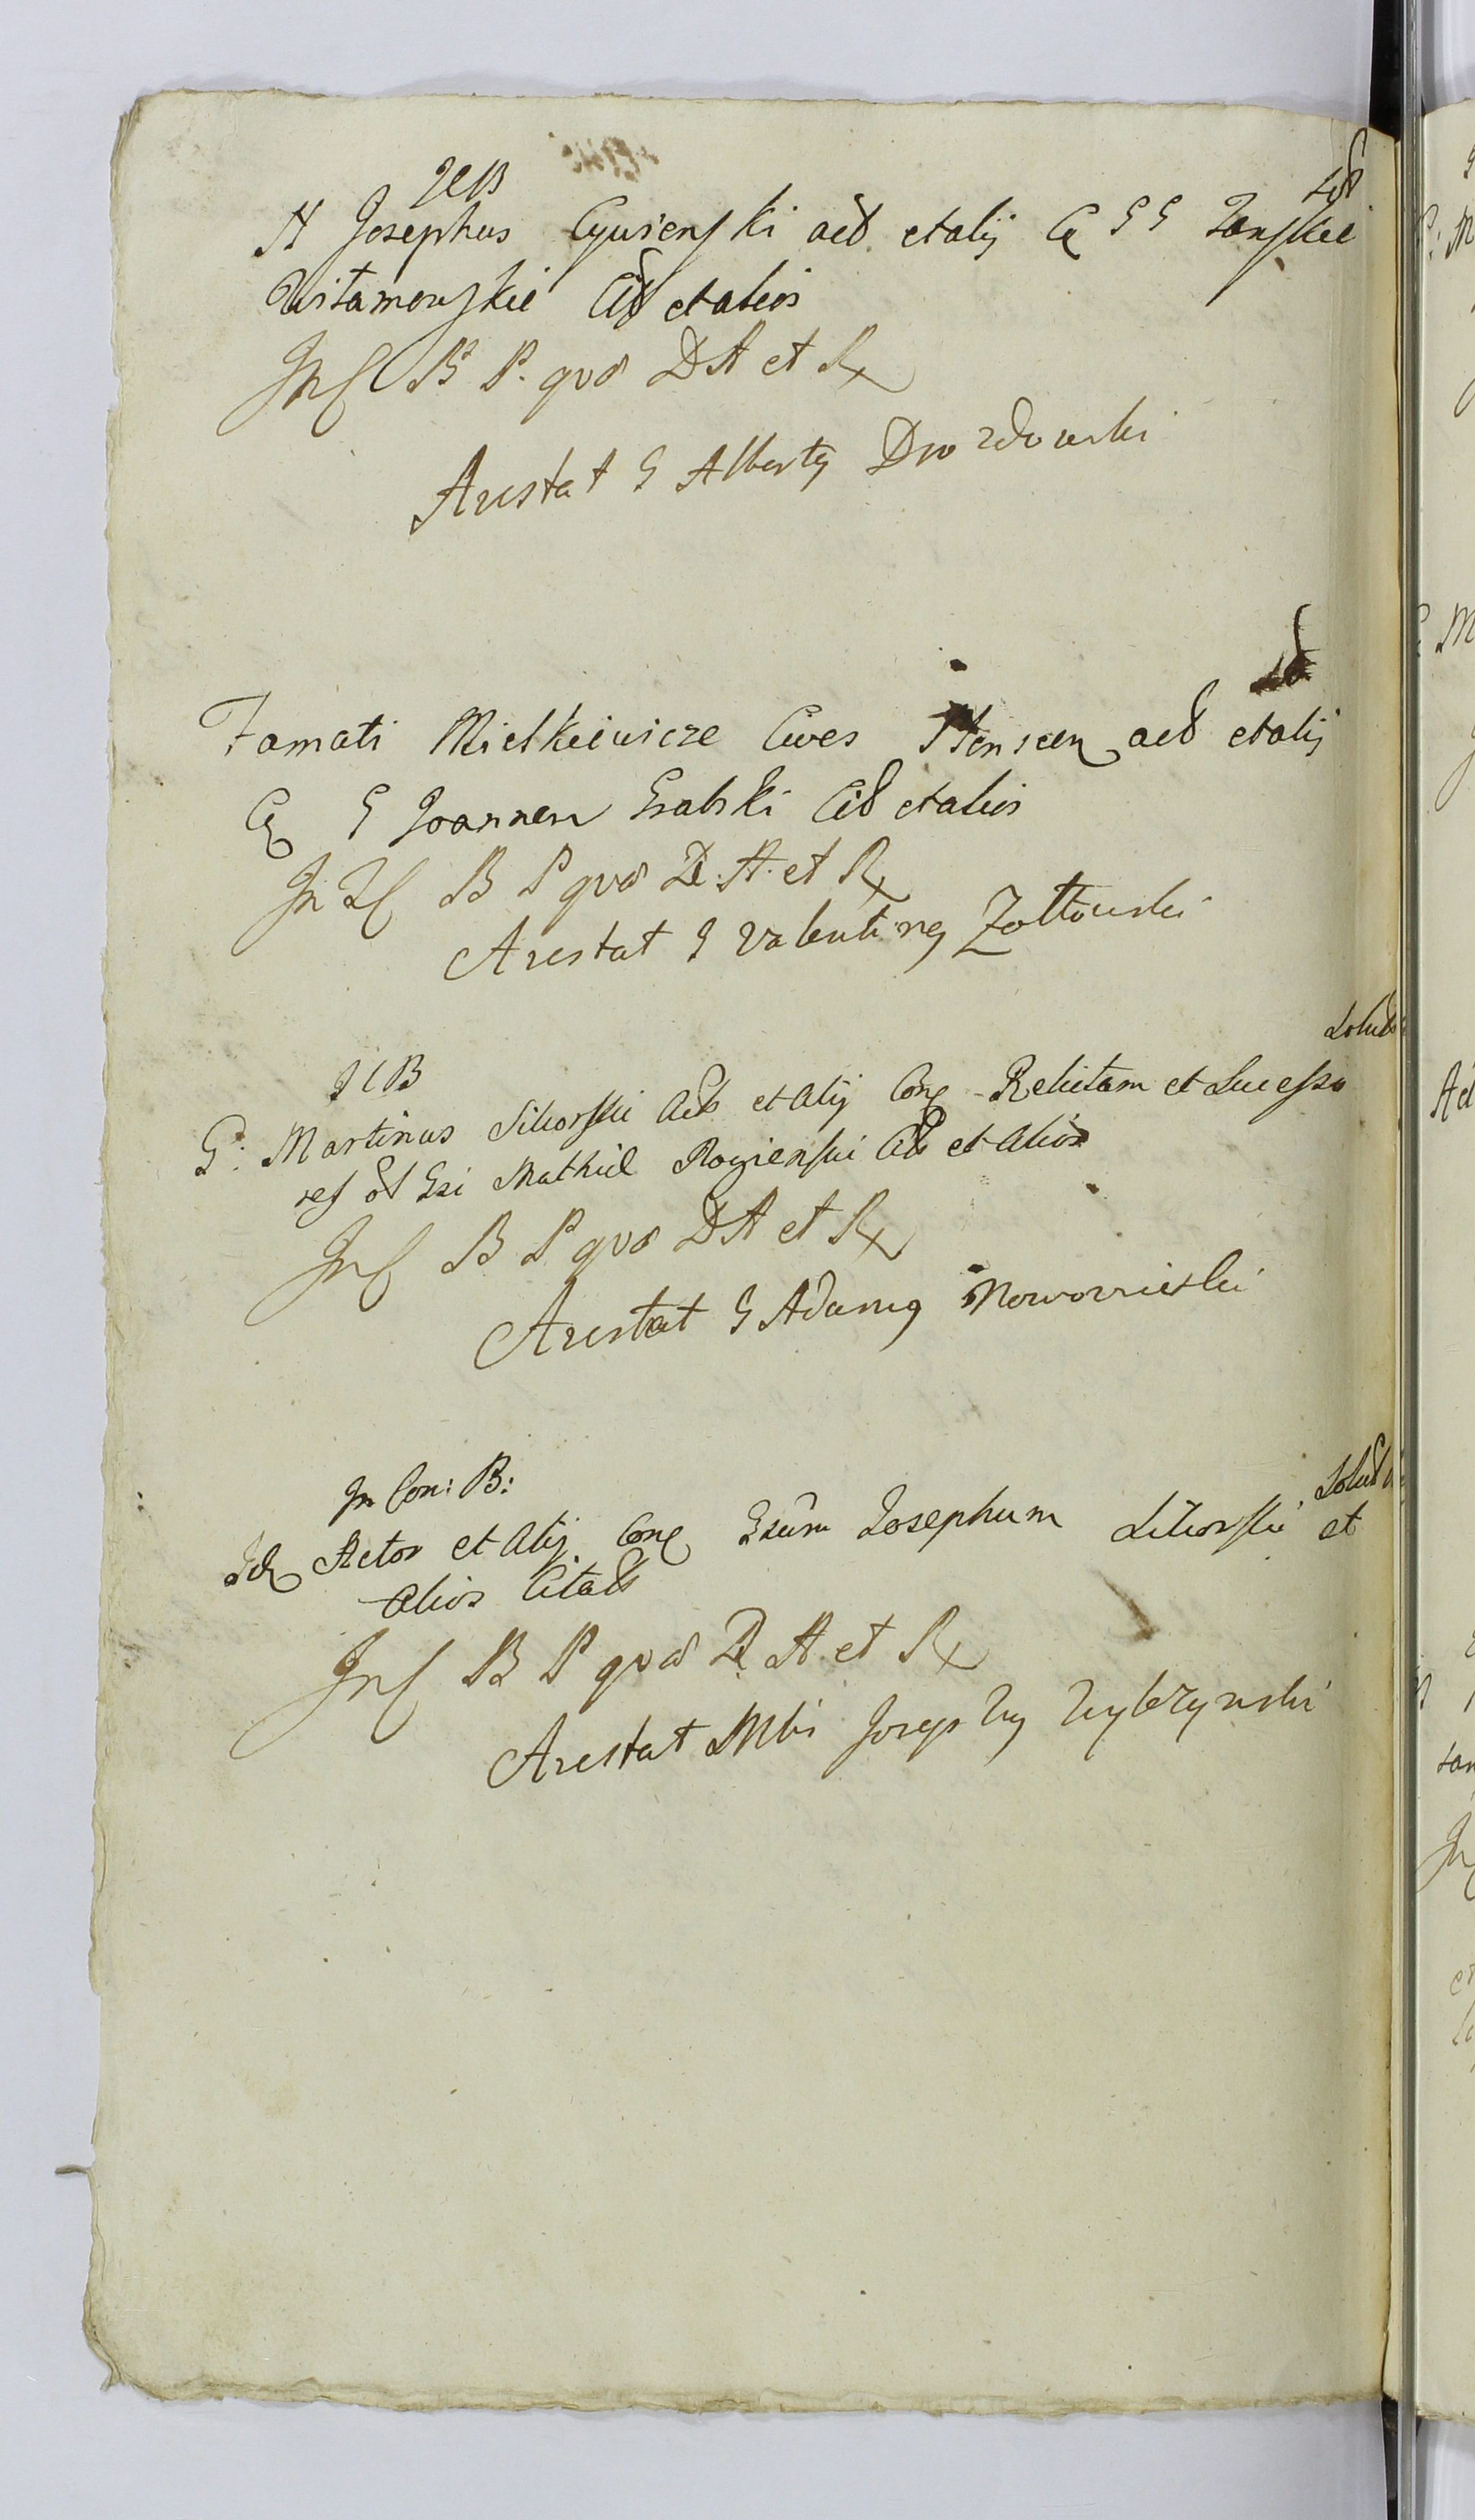 JCB
N Josephus Cywienski acto et alij C G G Zenskie
Witamowskie Cit et alios
Inf B P. qvo D A et Rx
Arestat G Alberty Drozdowski
Famati Mietkiewicze Cives act et alij
C G Joannem Grabski Cit et alios
In Jf B P qvo D. A. et Rx
Arestat G Valentiny Zołtowski
JCB
Solut
G: Martinus Sikorski Act et Alij Con Relictam et Successo
res Gsi Mathiæ Rogienski Cit et Alios
Inf B P qvo D A et Rx
Arestat G Adamy Nowowieski
In Con: B:
Solut
Id Actor et Alij Con Gsum Josephum Sikorski et
Alios Citat
Inf B P qvo D A et Rx
Arestat Mbi Josephy